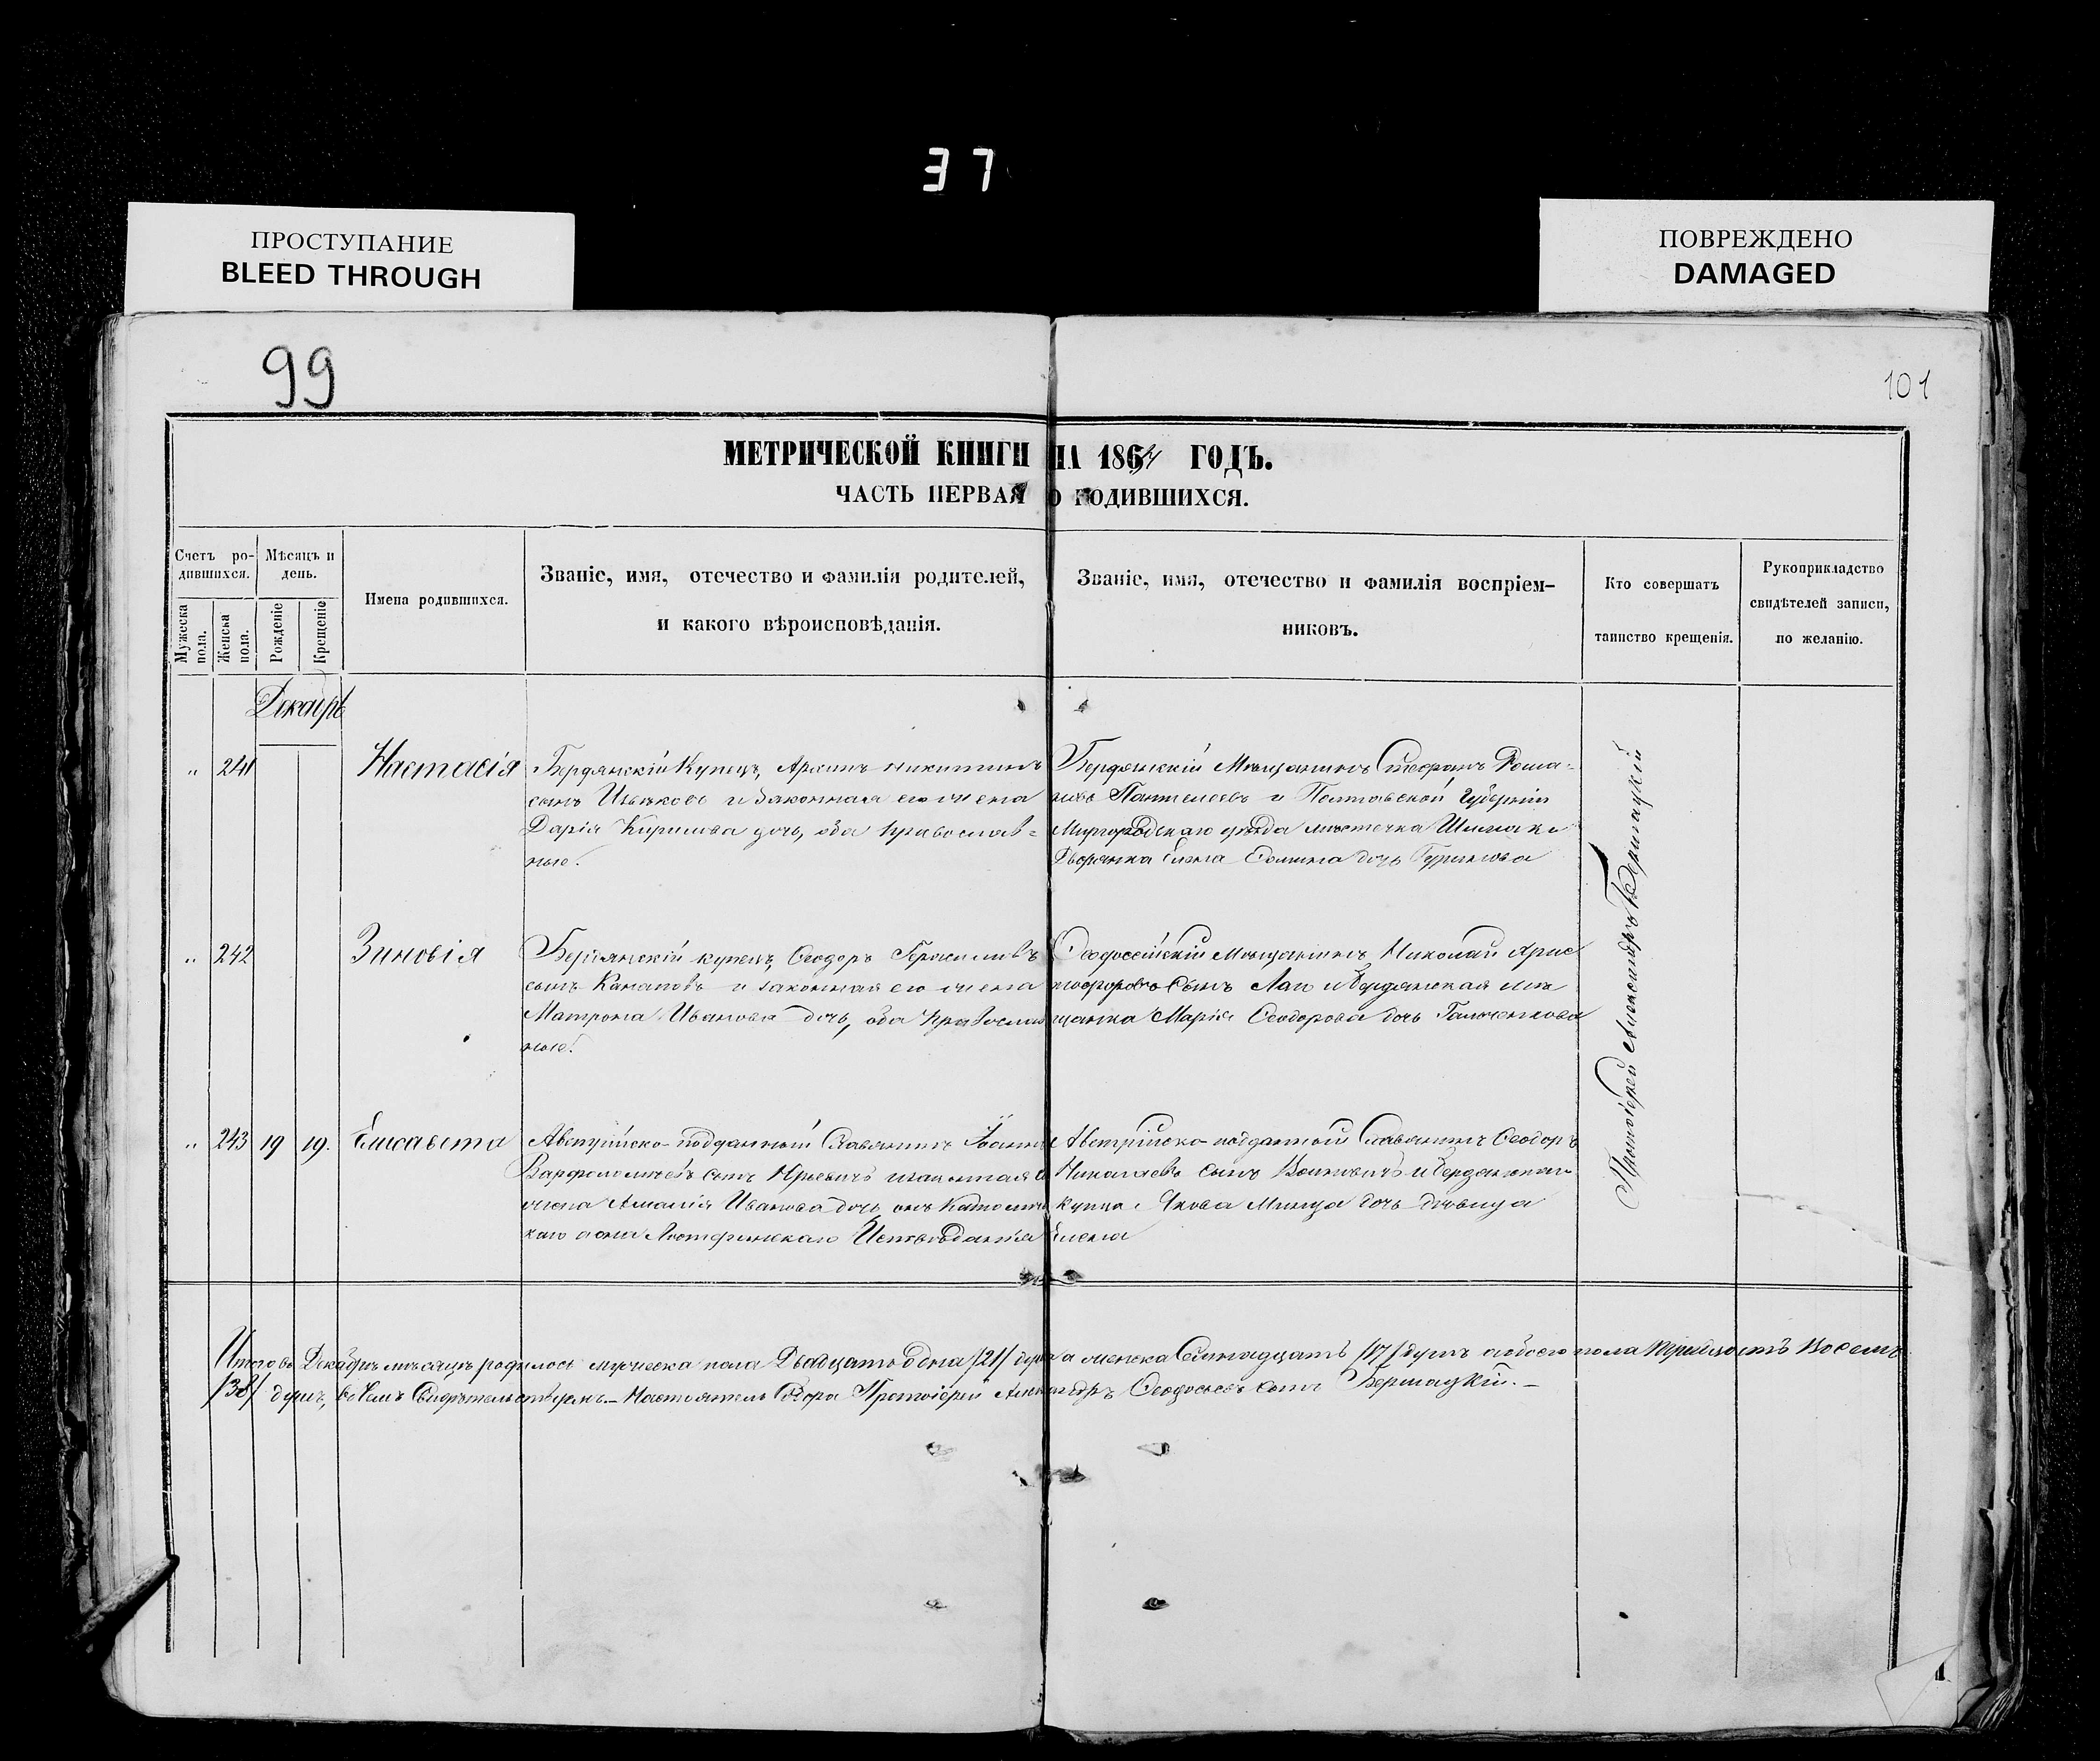 37
ПРОСТУПАНИЕ
BLEED THROUGH
ПОВРЕЖДЕНО
DAMAGED
99
101
МЕТРИЧЕСКОЙ КНИГИ НА 1864 ГОДЪ.
ЧАСТЬ ПЕРВАЯ О РОДИВШИХСЯ.
Счетъ ро-
дившихся.
Мужеска пола.
Женска пола.
Мѣсяцъ и
день.
Рожденіе
Крещеніе
Имена родившихся.
Званіе, имя, отечество и фамилія родителей,
и какого вѣроисповѣданія.
Званіе, имя, отечество и фамилія воспріем-
никовъ.
Кто совершатъ
таинство крещенія.
Рукоприкладство
свидѣтелей записи,
по желанію.
Декабрь
" 241 Настасія
Бердянскій Купецъ, никитинъ
сынъ и законная его жена
Дарія Кирилова дочь, оба православ-
ные.
Бердянскій Мѣщанинъ Стефанъ Рома-
новъ Пантелеевъ и Полтавской Губерніи
Миргородскаго уѣзда мѣстечка Шишаки
Дворянка Елена дочь
" 242 Зиновія
Бердянскій купецъ, Ѳеодоръ Герасимовъ
сынъ Канатовъ и законная его жена
Матрона Иванова дочь, оба православ
ные.
Ѳеодосійскій Мѣщанинъ Николай Хрис
тофоровъ Сынъ и Бердянская мѣ
щанка Марія Ѳеодорова дочь
" 243 19 19. Елисавета
Австрійско-подданный Славянинъ Іоаннъ
Варфоломѣевъ сынъ Юрьевичъ
жена Амалія Иванова дочь, онъ Католич
каго а она Лютеранскаго Исповѣданія
Австрійско-подданной Славянинъ Ѳеодоръ
Николаевъ сынъ Войновичъ и Бердянскаго
купца Якова дочь дѣвица
Елена
Протоіерей Александръ Бершацкій
Итого въ Декабрѣ мѣсяцѣ родилось мужеска пола Двадцать одна /21/ душа а женска Семнадцать /17/ душъ а обоего пола Тридцать Восемь
/38/ душъ, въ чемъ Свидѣтельствуемъ.— Настоятель Собора Протоіерей Александръ Ѳеодосіевъ сынъ Бершацкій.—